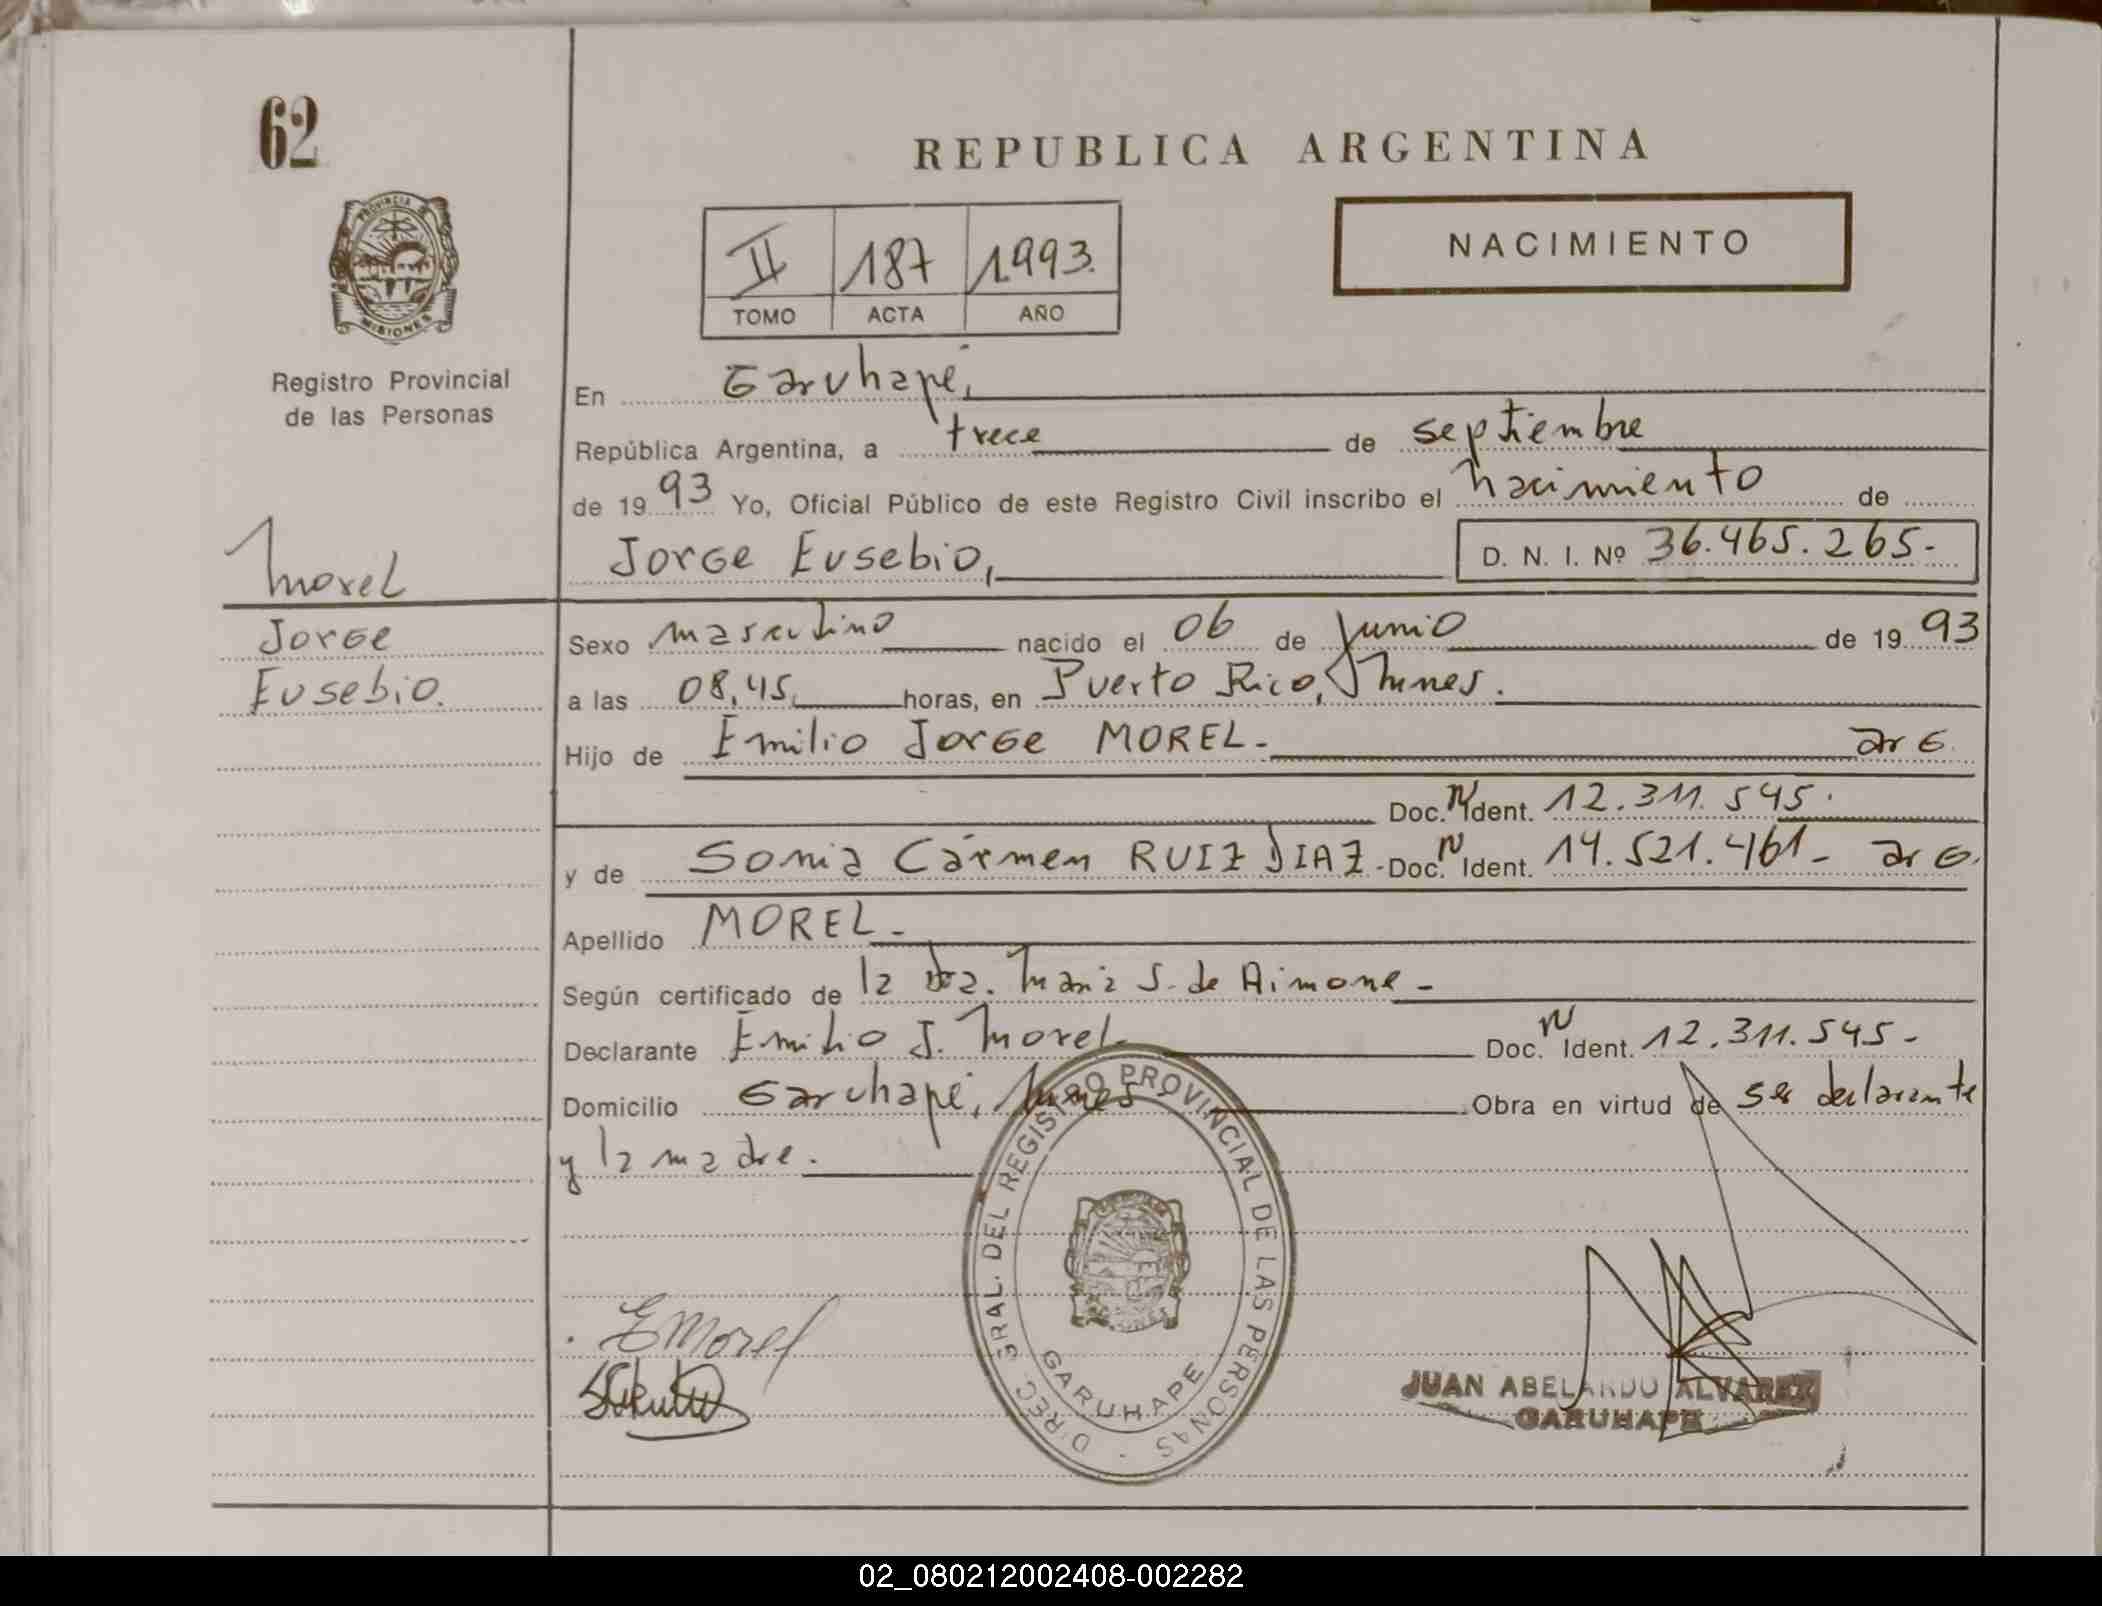 62
REPUBLICA ARGENTINA
PROVINCIA D MISIONES
II 187 1993.
TOMO ACTA AÑO
NACIMIENTO
Registro Provincial
de las Personas
En Garuhapé,
República Argentina, a trece de septiembre
de 1993 Yo, Oficial Público de este Registro Civil inscribo el nacimiento de
Jorge Eusebio, D. N. I. Nº 36.465.265.-
Morel
Jorge
Eusebio.
Sexo masculino nacido el 06 de Junio de 1993
a las 08,45, horas, en Puerto Rico, Mnes.
Hijo de Emilio Jorge MOREL.- arg.
Doc. N Ident. 12.311.545.
y de Sonia Cármen RUIZ DIAZ - Doc. N Ident. 14.521.461- arg.
Apellido MOREL.-
Según certificado de la dra. Maria S. de Aimone.-
Declarante Emilio J. Morel Doc. N Ident. 12.311.545.-
Domicilio Garuhapé, Mnes Obra en virtud de ser declarante
y la madre.
EMorel
DIREC. GRAL. DEL REGISTRO PROVINCIAL DE LAS PERSONAS -
GARUHAPE
JUAN ABELARDO ALVAREZ
GARUHAPE
02_080212002408-002282